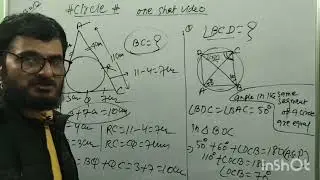 #Circle # one shot video
BC=?
∠BCD=?
A
11-4=7cm
3cm Q 7cm
3+7=10cm
=4cm RC=11-4=7cm
=3cm RC=CQ=7cm
= BQ+QC=3+7=10cm
Angle in the
same
segment
of a circle
are equal
∠BDC=∠BAC=50°
in △BDC
50°+60°+∠DCB=180°
110°+∠DCB=180
∠DCB=70°
KineMaster